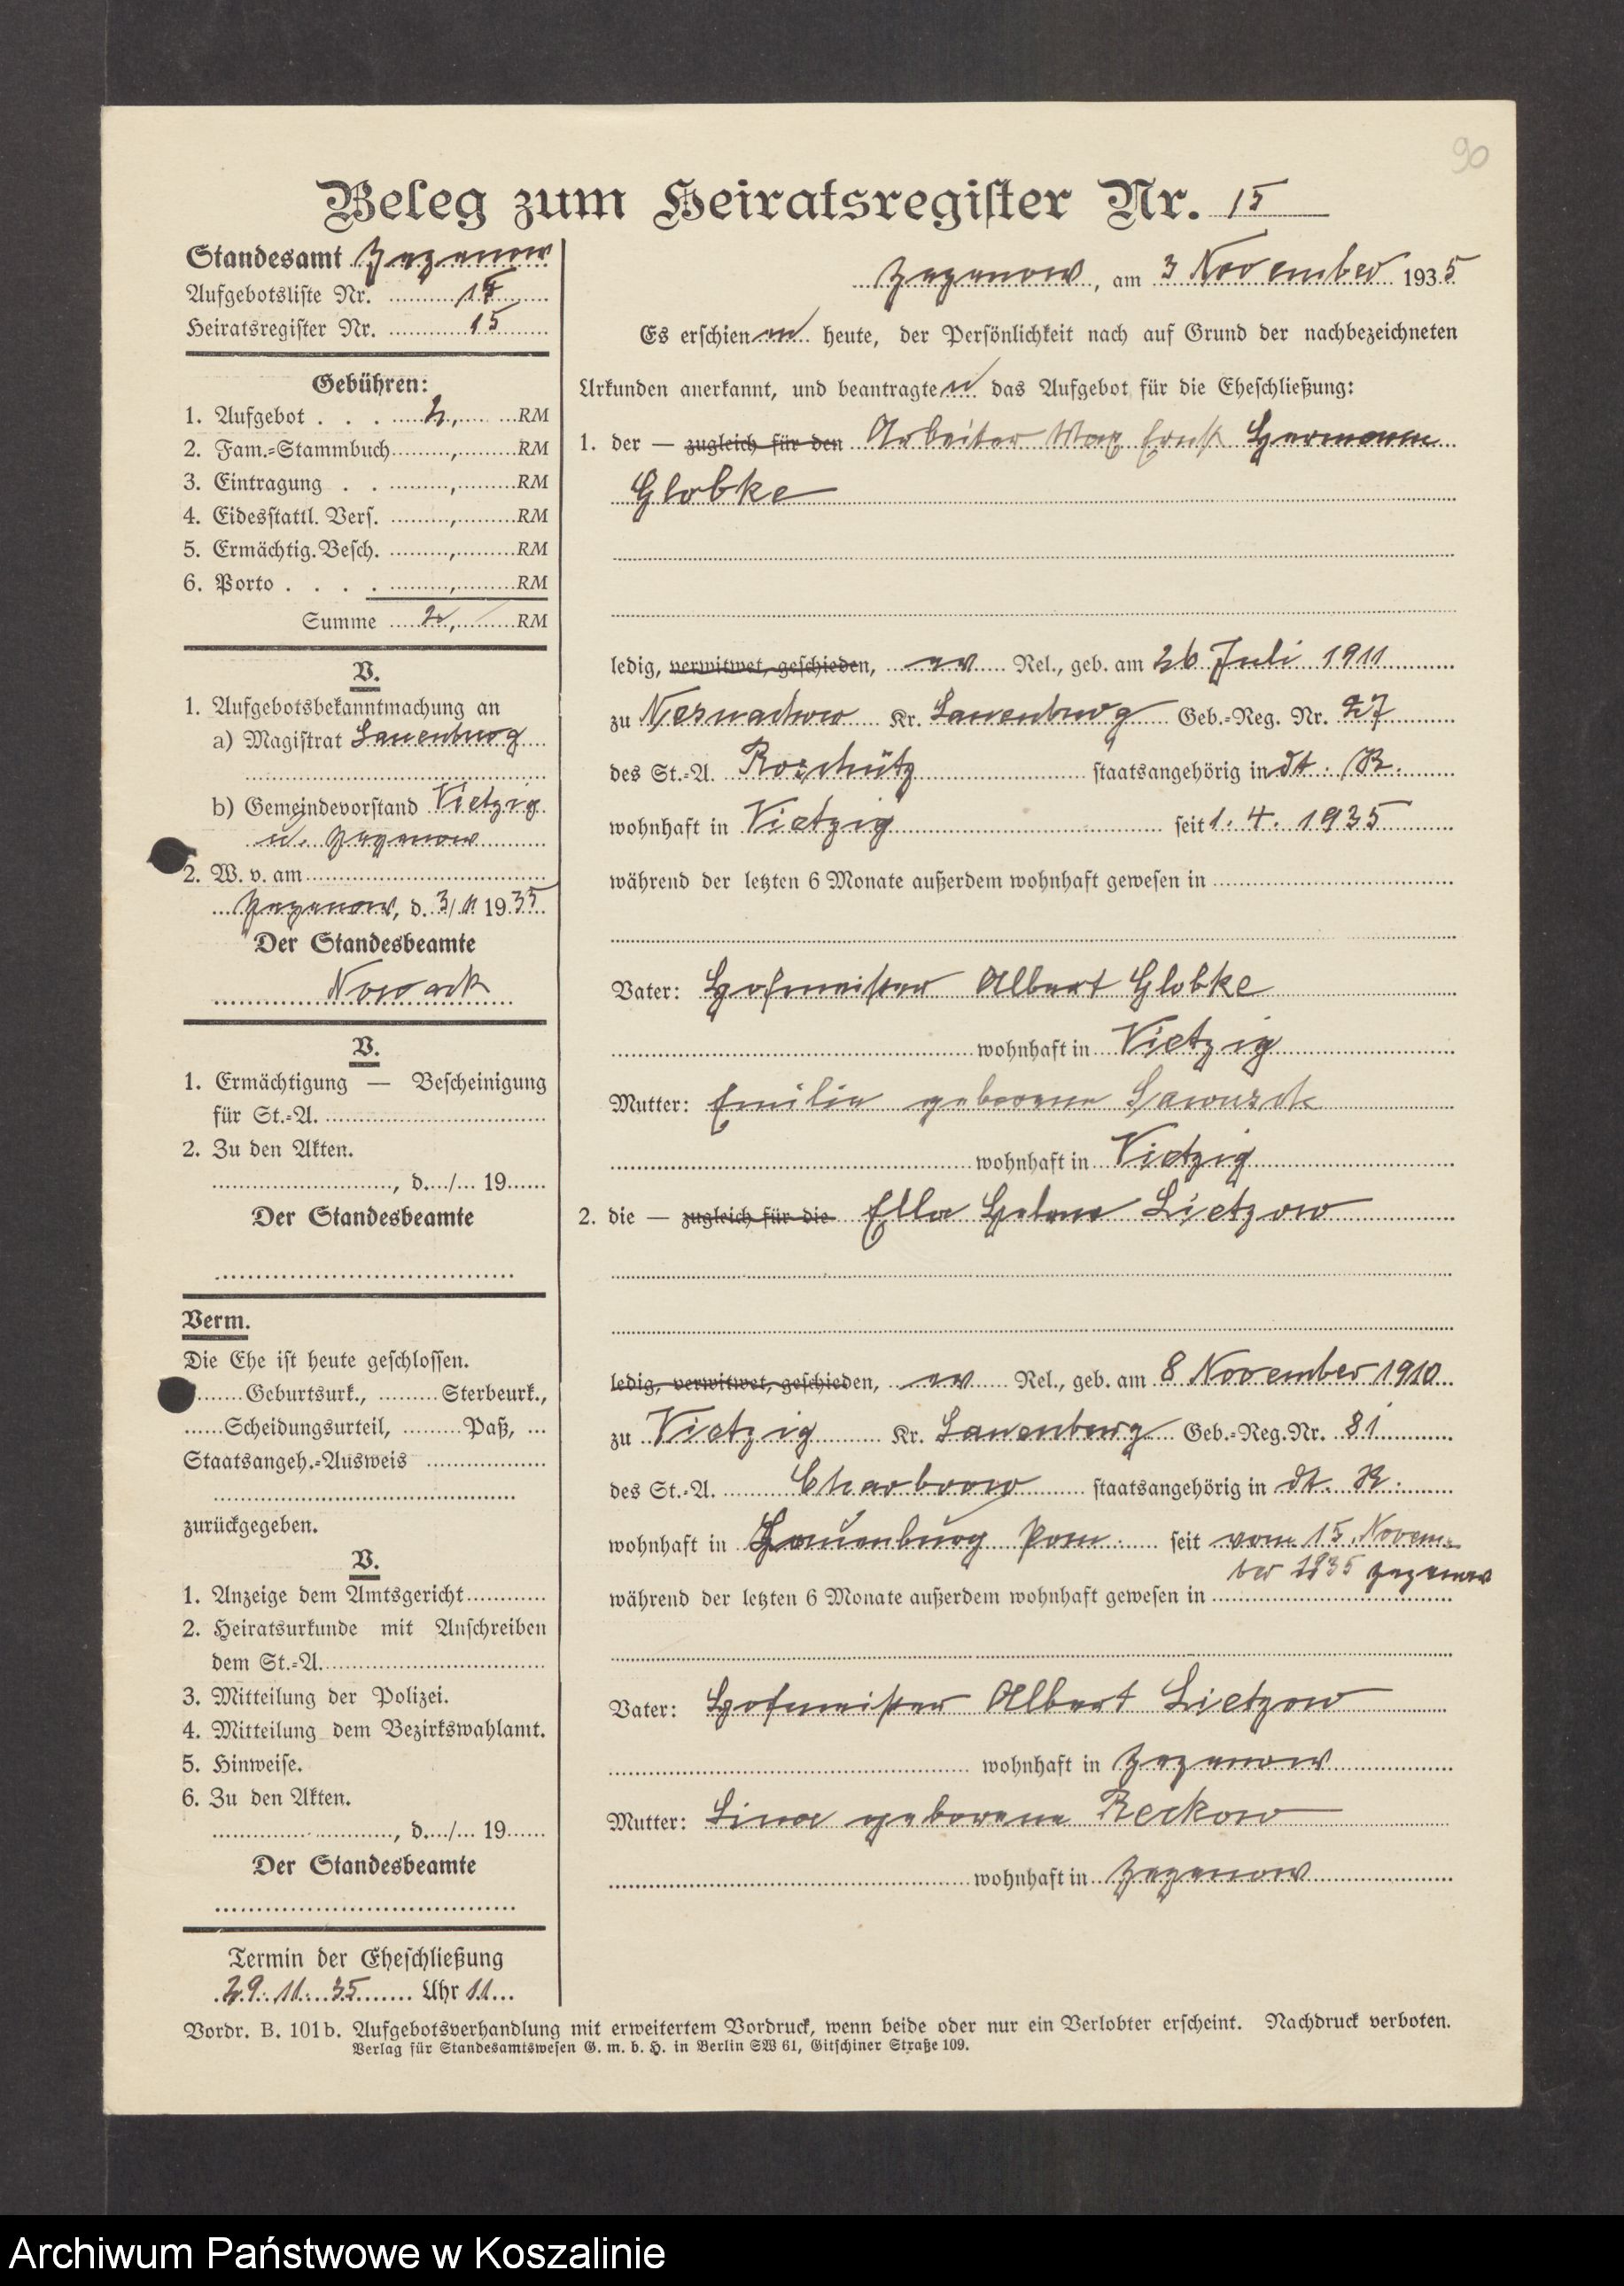 90
Beleg zum Heiratsregister Nr. 15
Standesamt Zezenow
Aufgebotsliste Nr.
Heiratsregister Nr. 15
Gebühren:
1. Aufgebot . . . 2, RM
2. Fam.=Stammbuch , RM
3. Eintragung . . , RM
4. Eidesstattl. Vers. , RM
5. Ermächtig. Besch. , RM
6. Porto . . . . , RM
Summe 2, RM
V.
1. Aufgebotsbekanntmachung an
a) Magistrat Lauenburg
b) Gemeindevorstand Vietzig
u. Zezenow
2. W. v. am
Zezenow, d. 3/11 1935
Der Standesbeamte
Nowack
V.
1. Ermächtigung — Bescheinigung
für St.=A.
2. Zu den Akten.
, d. / 19
Der Standesbeamte
Verm.
Die Ehe ist heute geschlossen.
Geburtsurk., Sterbeurk.,
Scheidungsurteil, Paß,
Staatsangeh.=Ausweis
zurückgegeben.
V.
1. Anzeige dem Amtsgericht
2. Heiratsurkunde mit Anschreiben
dem St.=A.
3. Mitteilung der Polizei.
4. Mitteilung dem Bezirkswahlamt.
5. Hinweise.
6. Zu den Akten.
, d. / 19
Der Standesbeamte
Termin der Eheschließung
29. 11. 35 Uhr 11
Zezenow, am 3 November 1935
Es erschienen heute, der Persönlichkeit nach auf Grund der nachbezeichneten
Urkunden anerkannt, und beantragten das Aufgebot für die Eheschließung:
1. der — zugleich für den Arbeiter Max Ernst Hermann
Globke
ledig, verwitwet, geschieden, ev Rel., geb. am 26 Juli 1911
zu Nesnachow Kr. Lauenburg Geb.=Reg. Nr. 27
des St.=A. Roschütz staatsangehörig in dt. R.
wohnhaft in Vietzig seit 1. 4. 1935
während der letzten 6 Monate außerdem wohnhaft gewesen in
Vater: Hofmeister Albert Globke
wohnhaft in Vietzig
Mutter: Emilie geborene
wohnhaft in Vietzig
2. die — zugleich für die Ella Helene Lietzow
ledig, verwitwet, geschieden, ev Rel., geb. am 8 November 1910
zu Vietzig Kr. Lauenburg Geb.=Reg. Nr. 81
des St.=A. Charbrow staatsangehörig in dt. R.
wohnhaft in Lauenburg Pom. seit vom 15. Novem-
ber 1935 Zezenow
während der letzten 6 Monate außerdem wohnhaft gewesen in
Vater: Hofmeister Albert Lietzow
wohnhaft in Zezenow
Mutter: Lina geborene Reckow
wohnhaft in Zezenow
Vordr. B. 101b. Aufgebotsverhandlung mit erweitertem Vordruck, wenn beide oder nur ein Verlobter erscheint. Nachdruck verboten.
Verlag für Standesamtswesen G. m. b. H. in Berlin SW 61, Gitschiner Straße 109.
Archiwum Państwowe w Koszalinie